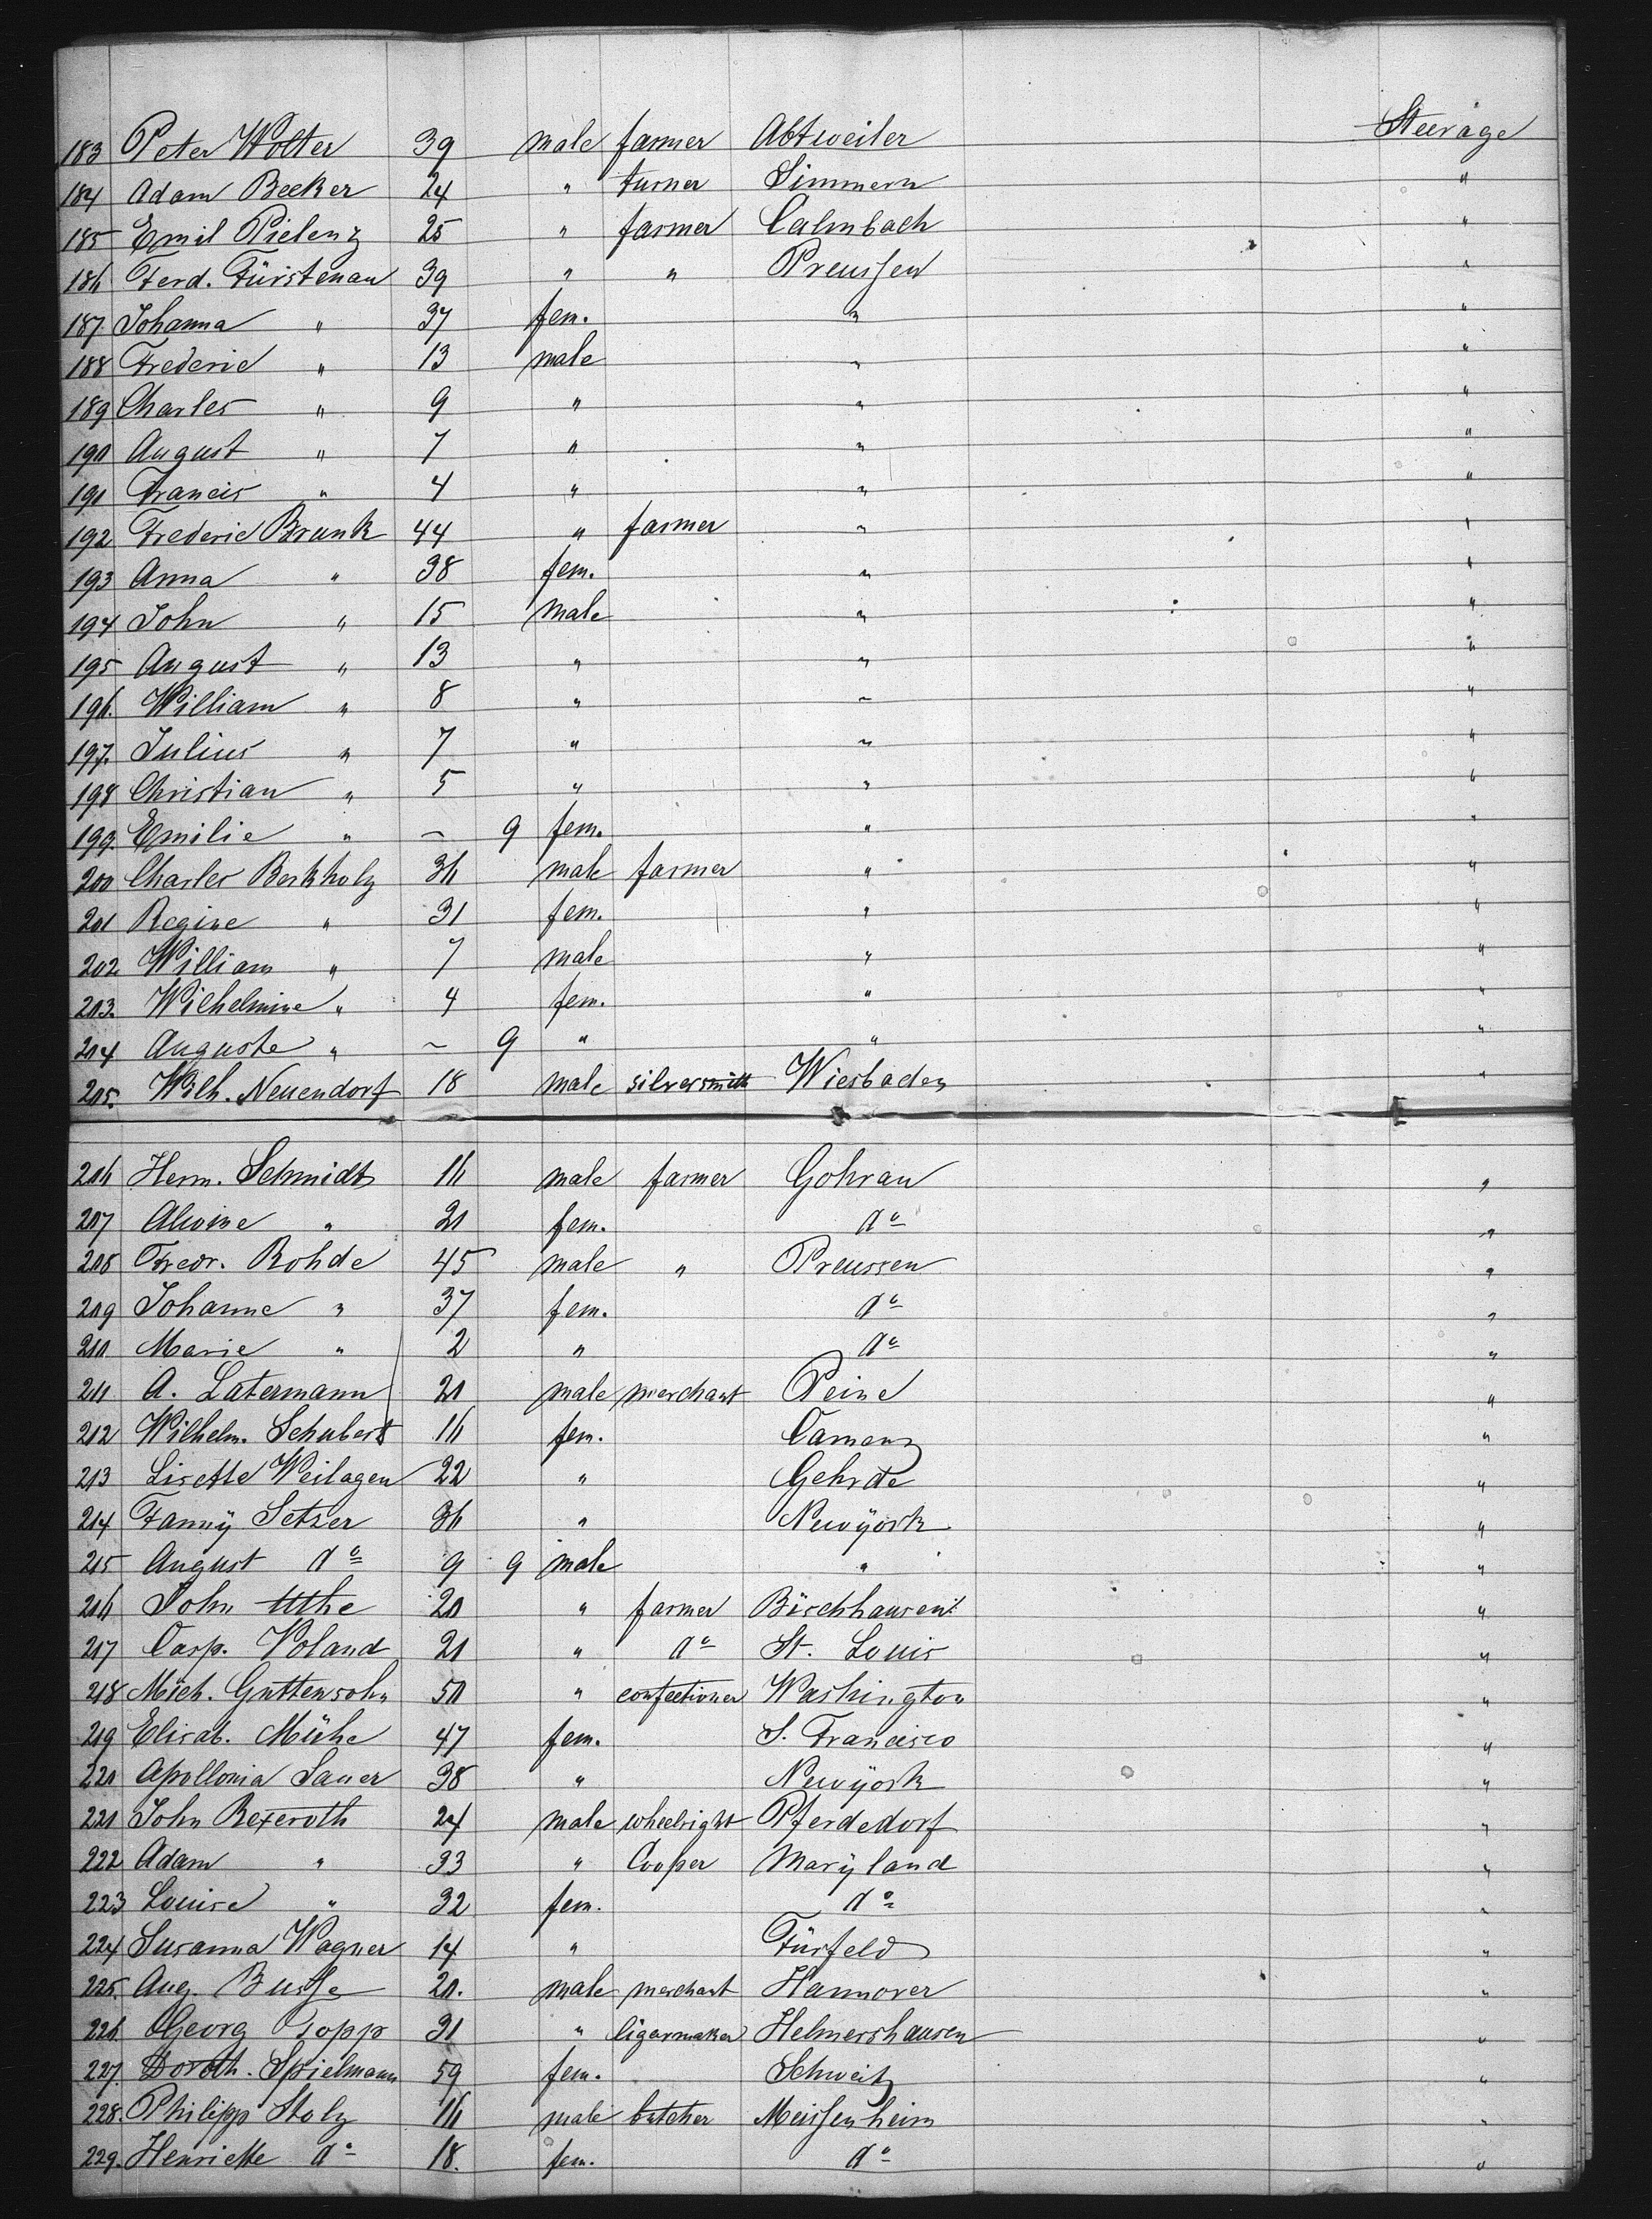 183 Peter Wolter 39 male farmer Abtweiler Steerage
184 Adam Becker 24 " turner Simmern "
185 Emil Pielenz 25 " farmer Calmbach "
186 Ferd. Fürstenau 39 " " Preussen "
187 Johanna " 37 fem. " "
188 Frederic " 13 male " "
189 Charles " 9 " " "
190 August " 7 " " "
191 Francis " 4 " " "
192 Frederic Brunk 44 " farmer " "
193 Anna " 38 fem. " "
194 John " 15 male " "
195 August " 13 " " "
196. William " 8 " " "
197. Julius " 7 " " "
198 Christian " 5 " " "
199. Emilie " - 9 fem. " "
200 Charles Berkholz 36 male farmer " "
201 Regine " 31 fem. " "
202 William " 7 male " "
203. Wilhelmine " 4 fem. " "
204 Auguste " - 9 " " "
205. Wilh. Neuendorf 18 male silversmith Wiesbaden "
206 Herm. Schmidt 16 male farmer Gohrau "
207 Alwine " 20 fem. do "
208 Fredr. Rohde 45 male " Preussen "
209 Johanne " 37 fem. do "
210 Marie " 2 " do "
211 A. Latermann 20 male merchant Peine "
212 Wilhelm. Schubert 16 fem. Camenz "
213 Lisette Weilagen 22 " Gehrde "
214 Fannÿ Setzer 36 " Newÿork "
215 August do 9 9 male " "
216 John Uthe 20 " farmer Bischhausen "
217 Casp. Voland 21 " do St. Louis "
218 Mich. Guttensohn 50 " confectioner Washington "
219 Elisab. Mühe 47 fem. S. Francisco "
220 Apollonia Sauer 38 " Newÿork "
221 John Rexeroth 24 male wheelright Pferdedorf "
222 Adam " 33 " Cooper Marÿland "
223 Louise " 32 fem. do "
224 Susanna Wagner 14 " Fürfeld "
225. Aug. Busse 20. male merchant Hannover "
226. Georg Topp 31 " Cigarmaker Helmershausen "
227. Doroth. Spielmann 59 fem. Schweitz "
228. Philipp Stolz 16 male butcher Meissenheim "
229. Henriette do 18. fem. do "